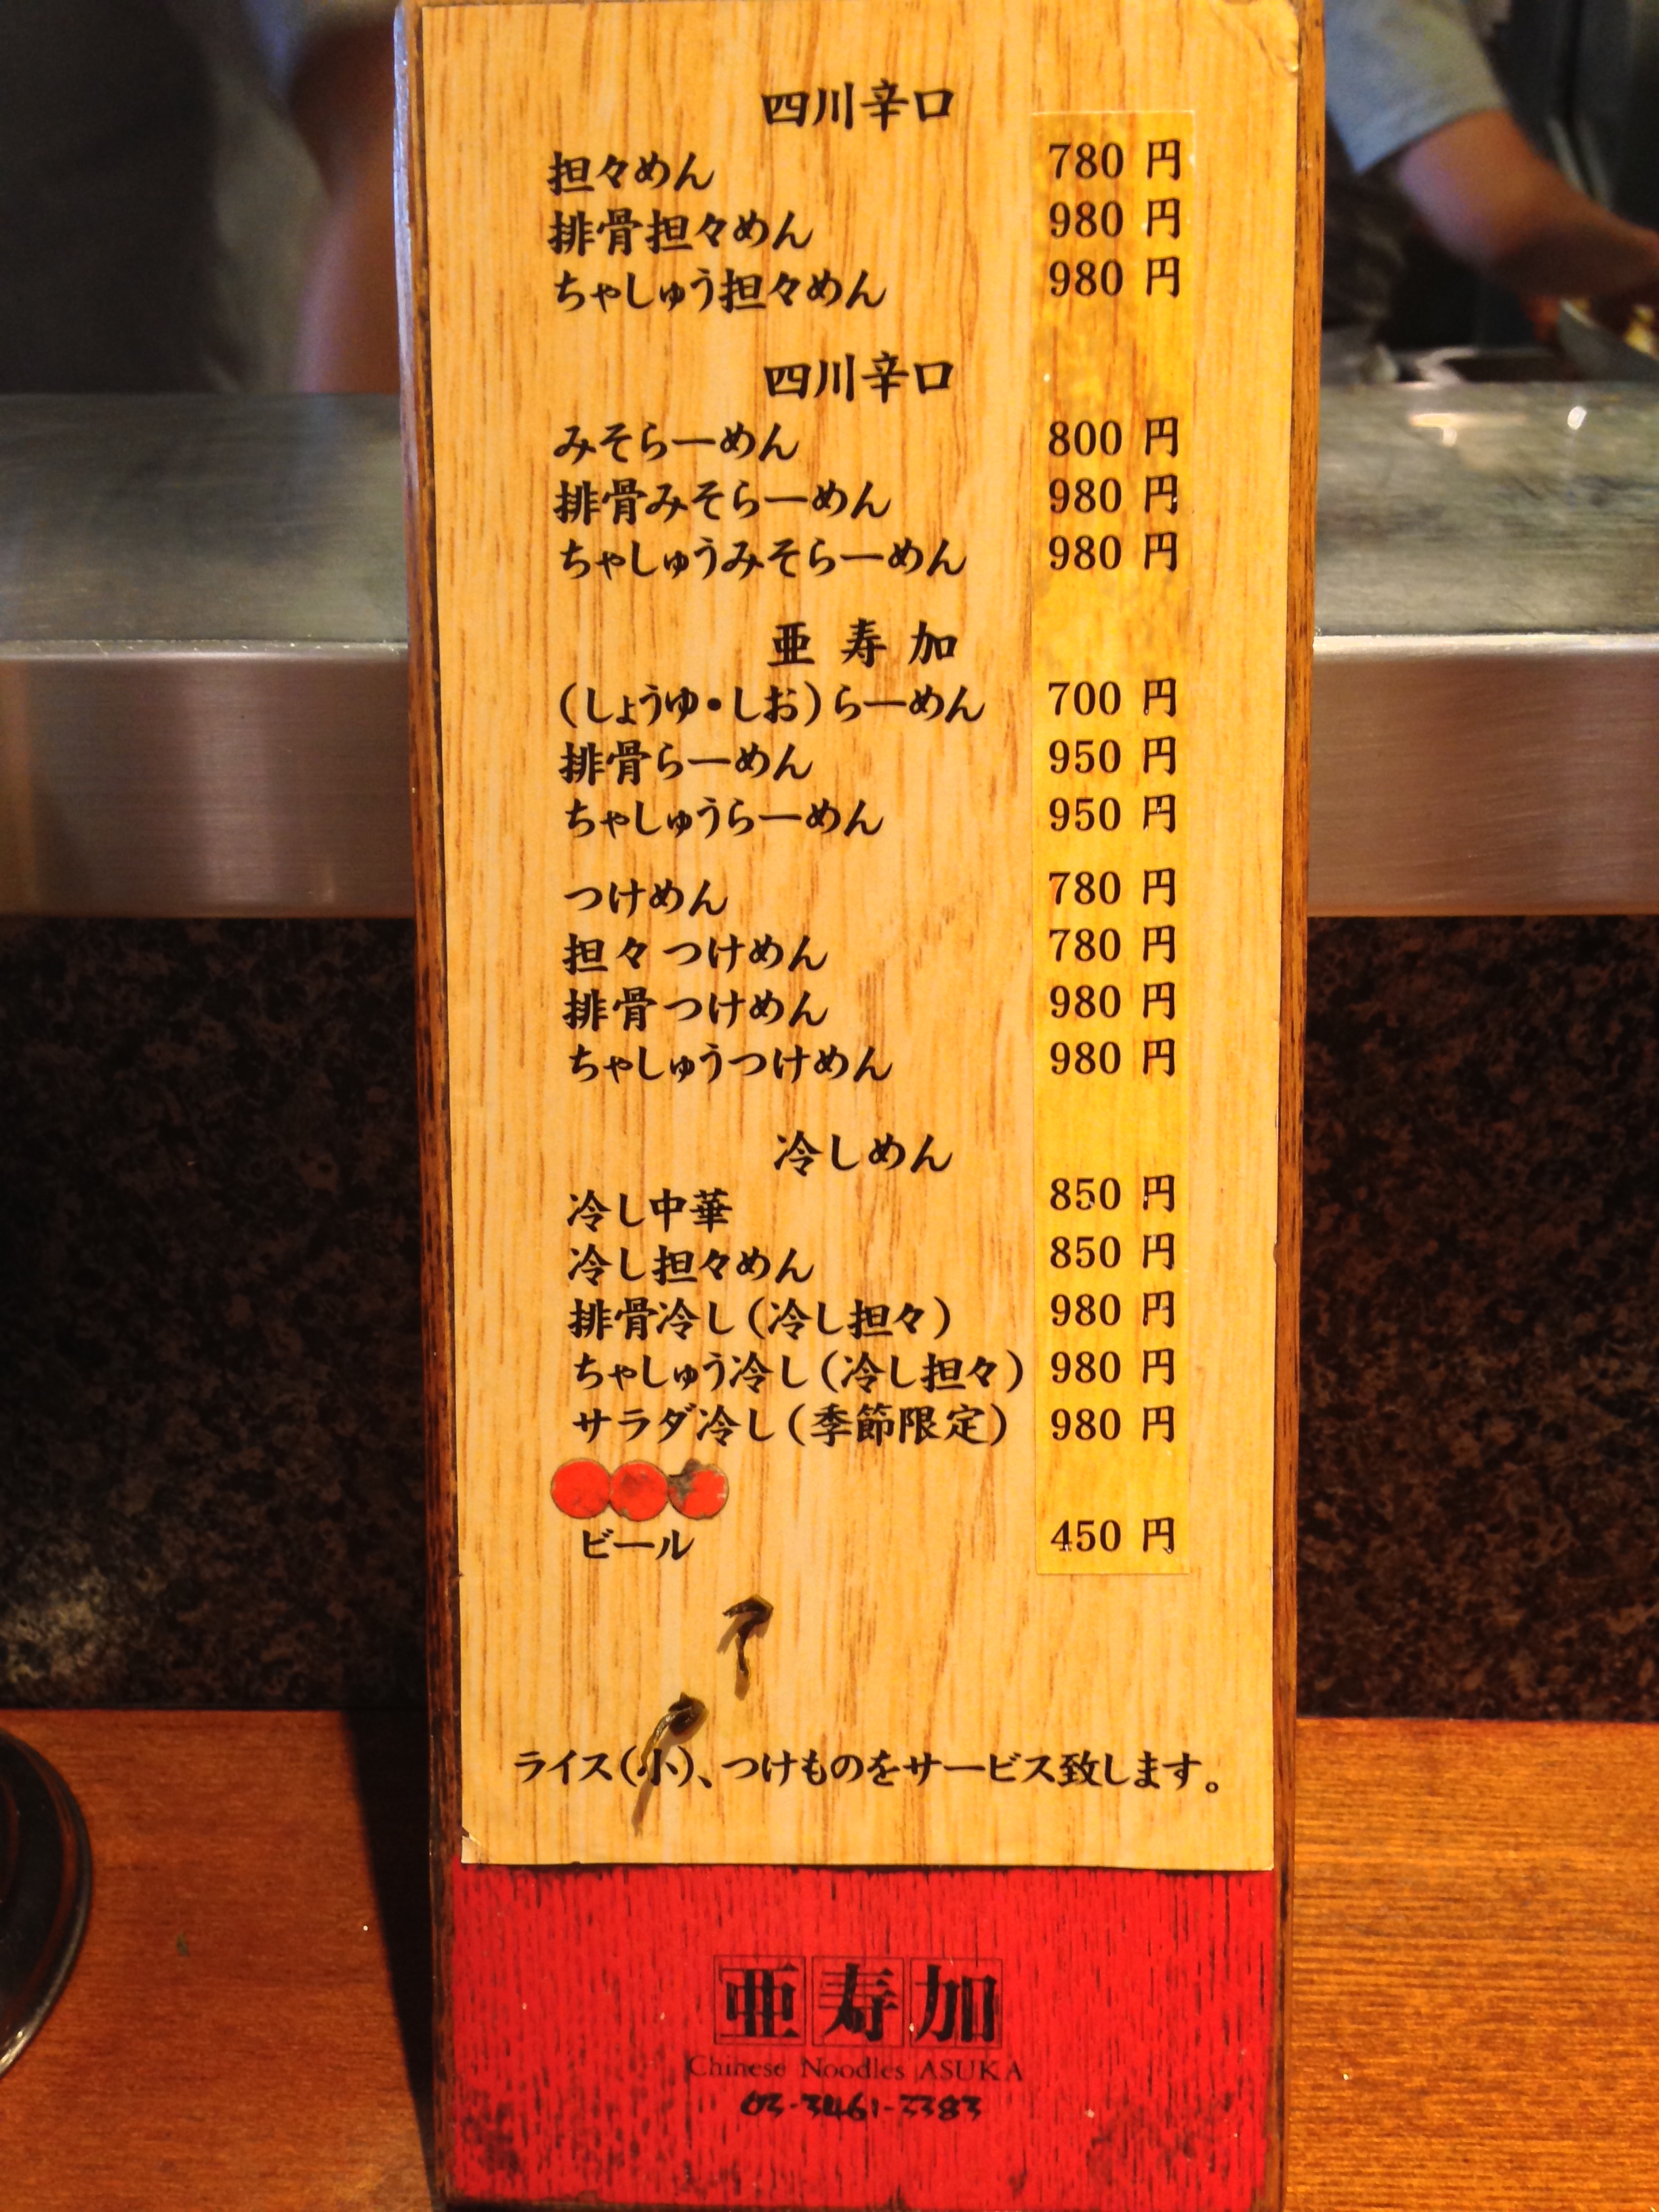 四川辛口
担々めん 780 円
排骨担々めん 980 円
ちゃしゅう担々めん 980 円
四川辛口
みそらーめん 800 円
排骨みそらーめん 980 円
ちゃしゅうみそらーめん 980 円
亜寿加
(しょうゆ・しお)らーめん 700 円
排骨らーめん 950 円
ちゃしゅうらーめん 950 円
つけめん 780 円
担々つけめん 780 円
排骨つけめん 980 円
ちゃしゅうつけめん 980 円
冷しめん
冷し中華 850 円
冷し担々めん 850 円
排骨冷し(冷し担々) 980 円
ちゃしゅう冷し(冷し担々) 980 円
サラダ冷し(季節限定) 980 円
ビール 450 円
ライス(小)、つけものをサービス致します。
亜寿加
Chinese Noodles ASUKA
03-3461-3383